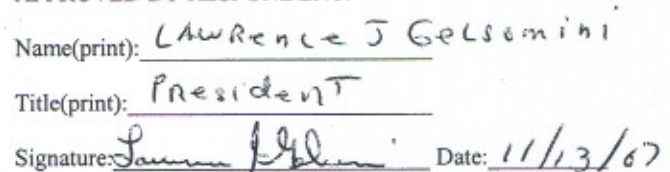 Name(print): LAWRence J GeLsomini
Title(print): PResidenT
Signature: Date: 11/13/07